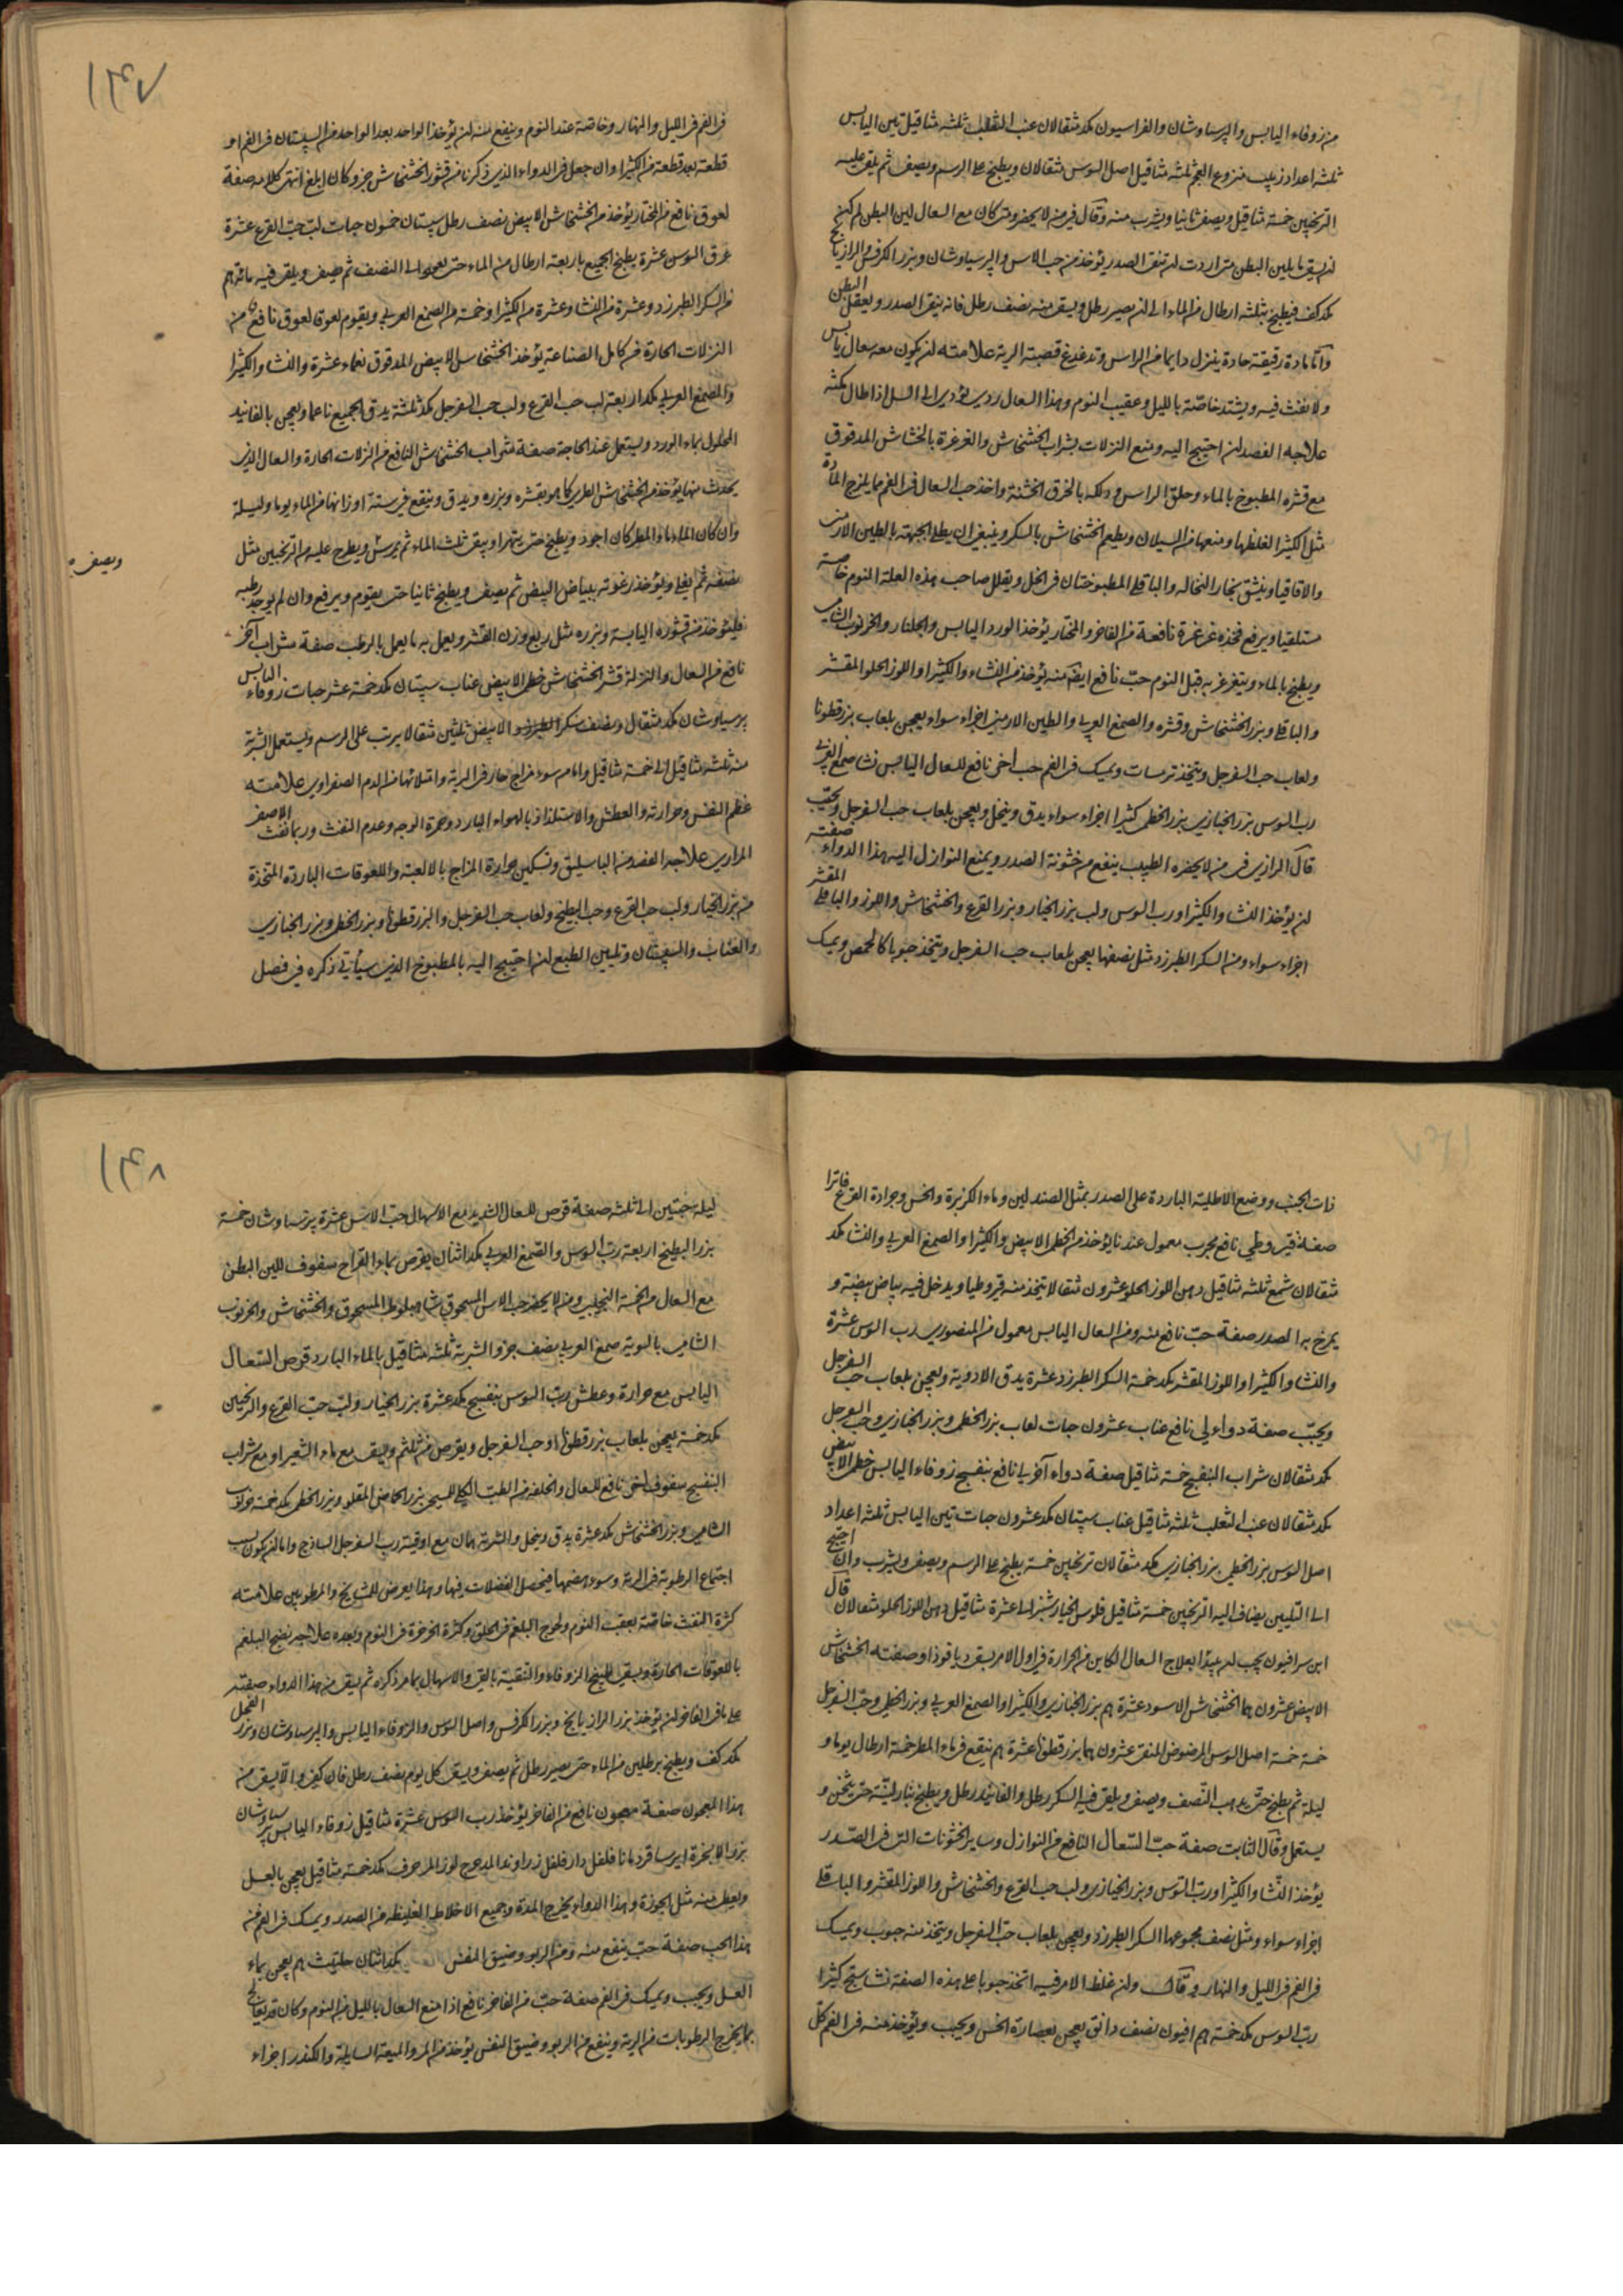 من زوفاء اليابس والپرسياوشان والفراسيون مكد مثقالان عنب الثعلب ثلثه مثاقيل تين اليابس
ثلثه اعداد زبيب منزوع العجم ثلثه مثاقيل اصل السوس مثقالان ويطبخ على الرسم ويصفى ثم يلقى عليه
الترنجبين خمسة مثاقيل ويصفى ثانيا ويشرب منه وقال فى من لا يحضره متى كان مع السعال لين البطن لم يكن
ان يسقى ما يلين البطن متى اردت ان تنقى الصدر يؤخذ من حب الاس والپرسياوشان وبزر الكرفس والرازيانج
مكد كف فيطبخ بثلثه ارطال من الماء الى ان يصير رطل ويسقى منه نصف رطل فانه ينقى الصدر ويعقل البطن
واما مادة رقيقة حادة ينزل دايما من الراس وتدغدغ قصبة الرية علامته ان يكون معه سعال يابس
ولا نفث فيه ويشتد خاصّة بالليل وعقيب النوم وهذا السعال ردى يؤدى الى السل اذا طال مكثه
علاجه الفصد ان احتيج اليه ومنع النزلات بشراب الخشخاش والغرغرة بالخشاش المدقوق
مع قشره المطبوخ بالماء وحلق الراس ودلكه بالخرق الخشنة واخذ حب السعال فى الفم مما يلزج المادّة
مثل الكثيرا لغلظها ومنعها من السيلان ويطعم الخشخاش بالسكر وينبغى ان يطلى الجبهة بالطين الارمنى
والاقاقيا وينشق بخار النخالة والباقلى المطبوختان فى الخل ويقلل صاحب هذه العلة النوم خاصة
مستلقيا ويرفع مخدة غرغرة نافعة من الفاخر والمختار يؤخذ الورد اليابس والجلنار والخرنوب الشامى
ويطبخ بالماء ويتغرغر به قبل النوم حبّ نافع ايضا منه يؤخذ من النشاء والكثيرا واللوز الحلو المقشر
والباقلى وبزر الخشخاش وقشره والصمغ العربى والطين الارمينى اجزاء سواء يعجن بلعاب بزر قطونا
ولعاب حب السفرجل ويتخذ ترمسات ويمسك فى الفم حب اخر نافع للسعال اليابس نشا صمغ العربى
رب السوس بزر الخبازى بزر الخطمى كثيرا اجزاء سواء يدق وينخل ويعجن بلعاب حب السفرجل ويحبّب
قال الرازى فى من لا يحضره الطبيب ينفع من خشونة الصدر ويمنع النوازل اليه هذا الدواء صفته
ان يؤخذ النشا والكثيرا ورب السوس ولب بزر الخيار وبزر القرع والخشخاش واللوز والباقلى المقشر
اجزاء سواء ومن السكر الطبرزد مثل نصفها يعجن بلعاب حب السفرجل ويتخذ حبوبا كالحمص ويمسك
١٣٧
فى الفم فى الليل والنهار وخاصة عند النوم وينفع منه ان يؤخذ الواحد بعد الواحد من السپستان فى الفم او
قطعة بعد قطعة من الكثيرا وان جعل فى الدواء الذى ذكرنا من قشور الخشخاش جزو كان ابلغ انتهى كلامه صفة
لعوق نافع من المختار يؤخذ من الخشخاش الابيض نصف رطل سپستان خمسون حبات لبّ حبّ القرع عشرة
عرق السوس عشرة يطبخ الجميع باربعة ارطال من الماء حتى يعود الى النصف ثم يصفى ويلقى فيه مائة درهم
من السكر الطبرزد وعشرة من النشا وعشرة من الكثيرا وخمسة من الصمغ العربى ويقوم لعوقا لعوق نافع من
النزلات الحارة من كامل الصناعة يؤخذ الخشخاش الابيض المدقوق ناعما عشرة والنشا والكثيرا
والصمغ العربى مكد اربعة لب حب القرع ولب حب السفرجل مكد ثلثة يدق الجميع ناعما ويعجن بالفانيد
المحلول بماء الورد ويستعمل عند الحاجة صفة شراب الخشخاش النافع من النزلات الحارة والسعال الذى
يحدث منها يؤخذ من الخشخاش الطرى كما هو بقشره وبزره ويدق وينقع فى ستة اوزانها من الماء يوما وليلة
وان كان الماء ماء المطر كان اجود ويطبخ حتى يتهرا ويبقى ثلث الماء ثم يمرس ويطرح عليه من الترنجبين مثل
ويصفى
نصفه ثم يغلى ويؤخذ رغوته ببياض البيض ثم يصفى ويطبخ ثانيا حتى يقوم ويرفع وان لم يوجد رطبه
فليؤخذ من قشوره اليابسة وبزره مثل ربع وزن القشر ويعمل به ما يعمل بالرطب صفة شراب آخر
نافع من السعال والنزلة قشر الخشخاش خطمى الابيض عناب سپستان مكد خمسة عشر حبات زوفاء اليابس
پرسياوشان مكد مثقال ونصف سكر الطبرزد الابيض ثلثين مثقالا يرتب على الرسم ويستعمل الشربة
منه ثلثه مثاقيل الى خمسة مثاقيل واما من سوء مزاج حار فى الرية وامتلائها من الدم الصفراوى علامته
عظم النفس وحرارته والعطش والاستلذاذ بالهواء البارد وحمرة الوجه وعدم النفث وربما نفث الاصفر
المرارى علاجه الفصد من الباسليق وتسكين حرارة المزاج بالالعبة واللعوقات الباردة المتخذة
من بزر الخيار ولب حب القرع وحب البطيخ ولعاب حب السفرجل والبزر قطونا وبزر الخطمى وبزر الخبازى
والعناب والسپستان وتليين الطبع ان احتيج اليه بالمطبوخ الذى سيأتى ذكره فى فصل
ذات الجنب ووضع الاطلية الباردة على الصدر بمثل الصندلين وماء الكزبرة والخس وجرادة القرع فاترا
صفة قيروطى نافع مجرب معمول عندنا يؤخذ من الخطمى الابيض والكثيرا والصمغ العربى والنشا مكد
مثقالان شمع ثلثه مثاقيل دهن اللوز الحلو عشرون مثقالا يتخذ منه قيروطيا ويدخل فيه بياض بيضة و
يمرخ به الصدر صفة حبّ نافع منه ومن السعال اليابس معمول من المنصورى رب السوس عشرة
والنشا والكثيرا واللوز المقشر مكد خمسة السكر الطبرزد عشرة يدق الادوية ويعجن بلعاب حب السفرجل
ويحبّب صفة دواء لى نافع عناب عشرون حبات لعاب بزر الخطمى وبزر الخبازى وحب السفرجل
مكد مثقالان شراب البنفسج خمسة مثاقيل صفة دواء آخر لى نافع بنفسج زوفاء اليابس خطمى الابيض
مكد مثقالان عنب الثعلب ثلثه مثاقيل عناب سپستان مكد عشرون حبات تين اليابس ثلثه اعداد
اصل السوس بزر الخطمى بزر الخبازى مكد مثقالان ترنجبين خمسة يطبخ على الرسم ويصفى ويشرب وان احتيج
الى التليين يضاف اليه الترنجبين خمسة مثاقيل فلوس الخيارشنبر الى عشرة مثاقيل دهن اللوز الحلو مثقالان قال
ابن سرافيون يجب ان يبدأ بعلاج السعال الكاين من الحرارة فى اول الامر بسقى دياقوذا وصفته الخشخاش
الابيض عشرون درهما الخشخاش الاسود عشرة درهم بزر الخبازى والكثيرا والصمغ العربى وبزر الخطمى وحبّ السفرجل
خمسة خمسة اصل السوس المرضوض المنقى عشرون درهما بزر قطونا عشرة درهم ينقع فى ماء المطر خمسة ارطال يوما و
ليلة ثم يطبخ حتى يذهب النّصف ويصفى ويلقى فيه السكر رطل والفانيد رطل ويطبخ بنار ليّنة حتى يثخن و
يستعمل وقال الثابت صفة حبّ السّعال النافع من النوازل وساير الخشونات التى فى الصّدر
يؤخذ النّشا والكثيرا وربّ السّوس وبزر الخبازى ولب حب القرع والخشخاش واللوز المقشر والباقلى
اجزاء سواء ومثل نصف مجموعها السكر الطبرزد ويعجن بلعاب حبّ السفرجل ويتخذ منه حبوب ويمسك
فى الفم فى الليل والنهار وقال وان غلظ الامر فيه اتخذ حبوبا على هذه الصفة نشاستج كثيرا
ربّ السوس مكد خمسة درهم افيون نصف دانق يعجن بعصارة الخس ويحبب ويؤخذ منه فى الفم كلّ
١٣٨
ليلة حبتين الى ثلثه صفة قرص للسعال الشديد مع الاسهال حبّ الاس عشرة پرسياوشان خمسة
بزر البطيخ اربعة ربّ السوس والصّمغ العربى مكد اثنان يقرص بماء القراح سفوف للين البطن
مع السعال من الخمسة النجيبى ومن لا يحضر حب الاس المسحوق شاه بلوط المسحوق والخشخاش والخرنوب
الشامى بالسوية صمغ العربى نصف جزو الشربة ثلثه مثاقيل بالماء البارد قرص السّعال
اليابس مع حرارة وعطش ربّ السوس بنفسج مكد عشرة بزر الخيار ولبّ حبّ القرع والترنجبين
مكد خمسة يعجن بلعاب بزر قطونا او حب السفرجل ويقرص من ثلثه ويسقى مع ماء الشعير او مع شراب
البنفسج سفوف اخر نافع للسعال والخلفة من الطب الكلى للمسيح بزر الحماض المقلو وبزر الخطمى مكد خمسة خرنوب
الشامى وبزر الخشخاش مكد عشرة يدق وينخل والشربة درهمان مع اوقية رب السفرجل الساذج واما ان يكون لسبب
اجتماع الرطوبة فى الرية وسوء هضمها فيحصل الفضلات فيها وهذا يعرض للمشايخ والمرطوبين علامته
كثرة النفث خاصّة بعقب النوم ولحوج البلغم فى الحلق وكثرة الخرخرة فى النوم وبعده علاجه نضج البلغم
باللعوقات الحارة وبسقى طبيخ الزوفاء والتنقية بالقى والاسهال بما مر ذكره ثم يسقى من هذا الدواء صفته
على ما فى الفاخر ان يؤخذ بزر الرازيانج وبزر الكرفس واصل السوس والزوفاء اليابس والپرسياوشان وبزر الفجل
مكد كف ويطبخ برطلين من الماء حتى يصير رطل ثم يصفى ويسقى كل يوم نصف رطل فان كفى والّا يسقى من
هذا المعجون صفة معجون نافع من الفاخر يؤخذ رب السوس عشرة مثاقيل زوفاء اليابس پرسياوشان
بزر الانجرة ايرسا قردمانا فلفل دارفلفل زراوند المدحرج لوز المر حرف مكد خمسة مثاقيل يعجن بالعسل
ويعطى منه مثل الجوزة وهذا الدواء يخرج المدة وجميع الاخلاط الغليظة من الصدر ويمسك فى الفم من
هذا الحب صفة حبّ ينفع منه ومن الربو وضيق النفس مكد اثنان حلتيت درهم يعجن بماء
العسل ويحبب ويمسك فى الفم صفة حبّ من الفاخر نافع اذا منع السّعال بالليل من النوم وكان قد يعالج
بما يخرج الرطوبات من الرية وينفع من الربو وضيق النفس يؤخذ من المر والميعة السايلة والكندر اجزاء